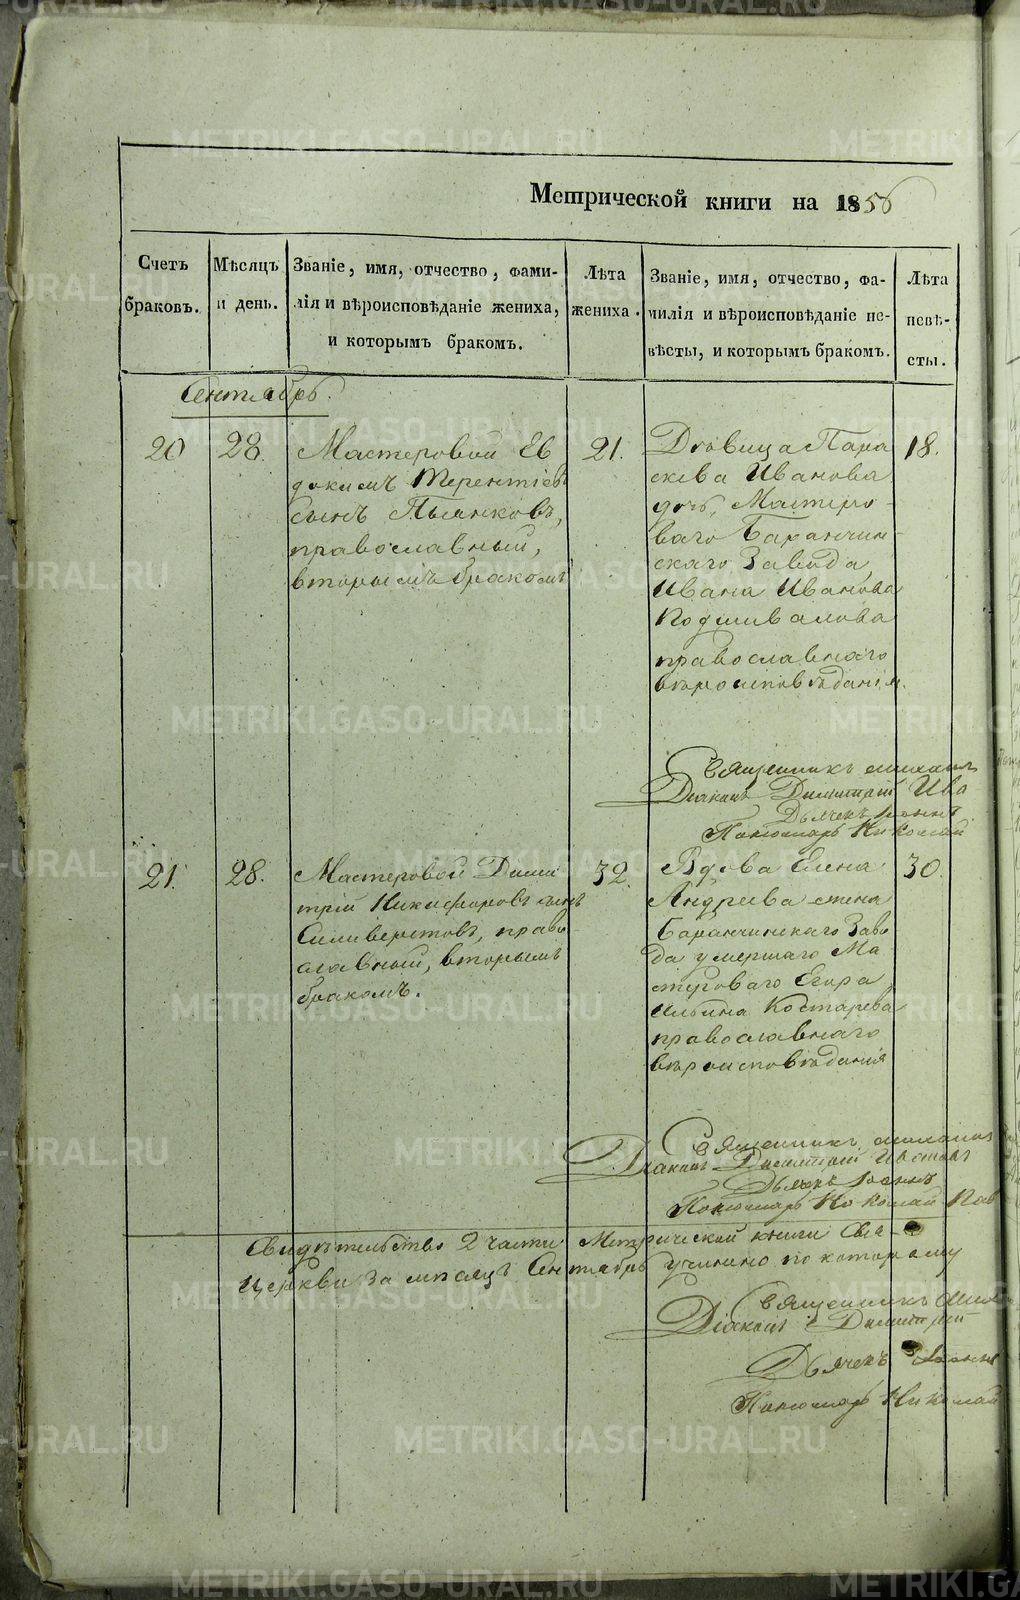 Метрической книги на 1856
Счетъ браковъ.
Мѣсяцъ и день.
Званіе, имя, отчество, фами-
лія и вѣроисповѣданіе жениха,
и которымъ бракомъ.
Лѣта жениха.
Званіе, имя, отчество, фа-
милія и вѣроисповѣданіе не-
вѣсты, и которымъ бракомъ.
Лѣта
невѣ-
сты.
Сентябрь.
20
28.
Мастеровой Ев
докимъ Терентіевъ
сынъ Пьянковъ,
православный,
вторымъ бракомъ
21.
Дѣвица Пара
скева Иванова
дочь, Мастеро-
ваго Баранчин-
скаго Завода,
Ивана Иванова
Подшивалова
православнаго
вѣроисповѣданія.
18.
Священникъ Михаилъ
Діаконъ Димитрій Ива
Дьячекъ Іоаннъ
Пономарь Николай
21.
28.
Мастеровой Дими
трій Никифоровъ сынъ
Силиверстовъ, право
славный, вторымъ
бракомъ.
32.
Вдова Елена
Андреева жена
Баранчинскаго Заво
да умершаго Ма
стероваго Егора
Ильина Костарева
православнаго
вѣроисповѣданія
30.
Священникъ Михаилъ
Діаконъ Димитрій Ивановъ
Дьячекъ Іоаннъ
Пономарь Николай Пав
Свидѣтельство 2 части Метрической книги Свя-
Церкви за мѣсяцъ Сентябрь учинено по которому
Священникъ Миха
Діаконъ Димитрій
Дьячекъ Іоанн
Пономарь Николай
METRIKI.GASO-URAL.RU